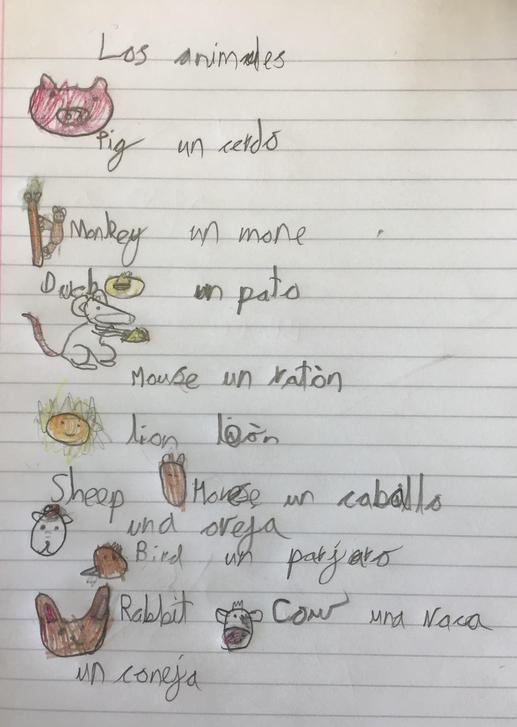 Los animales
Pig un cerdo
Monkey un mone
Duck un pato
Mouse un ratòn
lion leòn
Sheep Horse un caballo
una oveja
Bird un parjaro
Rabbit Cow una vaca
un coneja